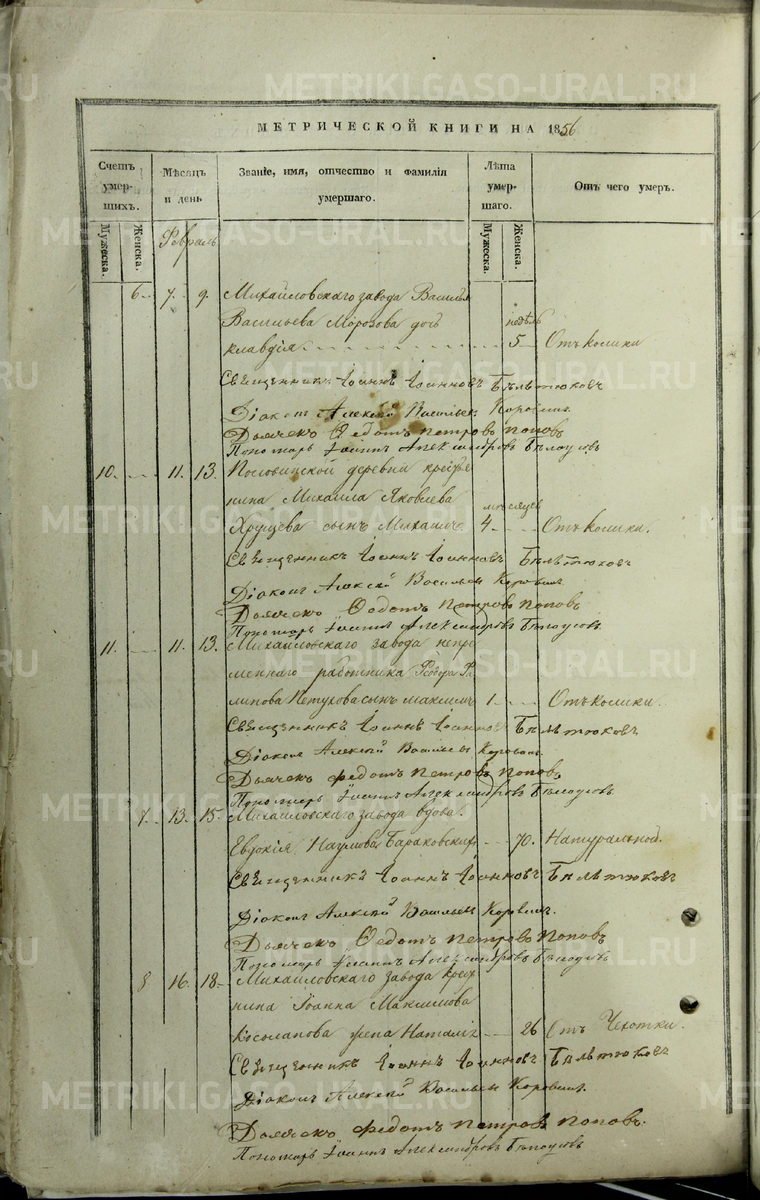 МЕТРИЧЕСКОЙ КНИГИ НА 1856
Счетъ умершихъ.
Мѣсяцъ и день
Званіе, имя, отчество и фамилія умершаго.
Лѣта умершаго.
Отъ чего умеръ.
Мужеска.
Женска.
Мужеска.
Женска.
Февраль
6 7. 9. Михайловскаго завода Василья
Васильева Морозова дочь недѣль
Клавдія 5 Отъ колики
Священникъ Іоаннъ Іоанновъ Бѣлтюковъ
Діаконъ Алексѣй Васильевъ Коровинъ.
Дьячекъ Федотъ Петровъ Поповъ
Пономарь Іоаннъ Александровъ Бѣлоусовъ
10. 11. 13. деревни крестья
нина Михаила Яковлева мѣсяцев
Хрущева сынъ Михаилъ 4 Отъ колики.
Священникъ Іоаннъ Іоанновъ Бѣлтюковъ
Діаконъ Алексѣй Васильевъ Коровинъ
Дьячекъ Федотъ Петровъ Поповъ
Пономарь Іоаннъ Александровъ Бѣлоусовъ
11. 11. 13. Михайловскаго завода непре
меннаго работника Феодора Фи
липова Петухова сынъ Максимъ 1 Отъ колики.
Священникъ Іоаннъ Іоанновъ Бѣлтюковъ
Діаконъ Алексѣй Васильевъ Коровинъ
Дьячекъ Федотъ Петровъ Поповъ
Пономарь Іоаннъ Александровъ Бѣлоусовъ
7. 13. 15. Михайловскаго завода вдова
Евдокія Наумова 70. Натуральной.
Священникъ Іоаннъ Іоанновъ Бѣлтюковъ
Діаконъ Алексѣй Васильевъ Коровинъ.
Дьячекъ Федотъ Петровъ Поповъ
Пономарь Іоаннъ Александровъ Бѣлоусовъ
8 16. 18. Михайловскаго завода крест
нина Іоанна Максимова
Косолапова жена Наталія 26 Отъ Чехотки.
Священникъ Іоаннъ Іоанновъ Бѣлтюковъ
Діаконъ Алексѣй Васильевъ Коровинъ.
Дьячекъ Федотъ Петровъ Поповъ.
Пономарь Іоаннъ Александровъ Бѣлоусовъ
METRIKI.GASO-URAL.RU